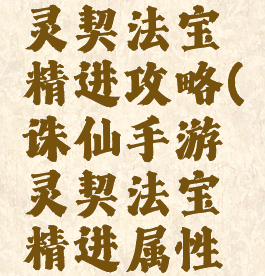 灵契法宝
精进攻略(
诛仙手游
灵契法宝
精进属性